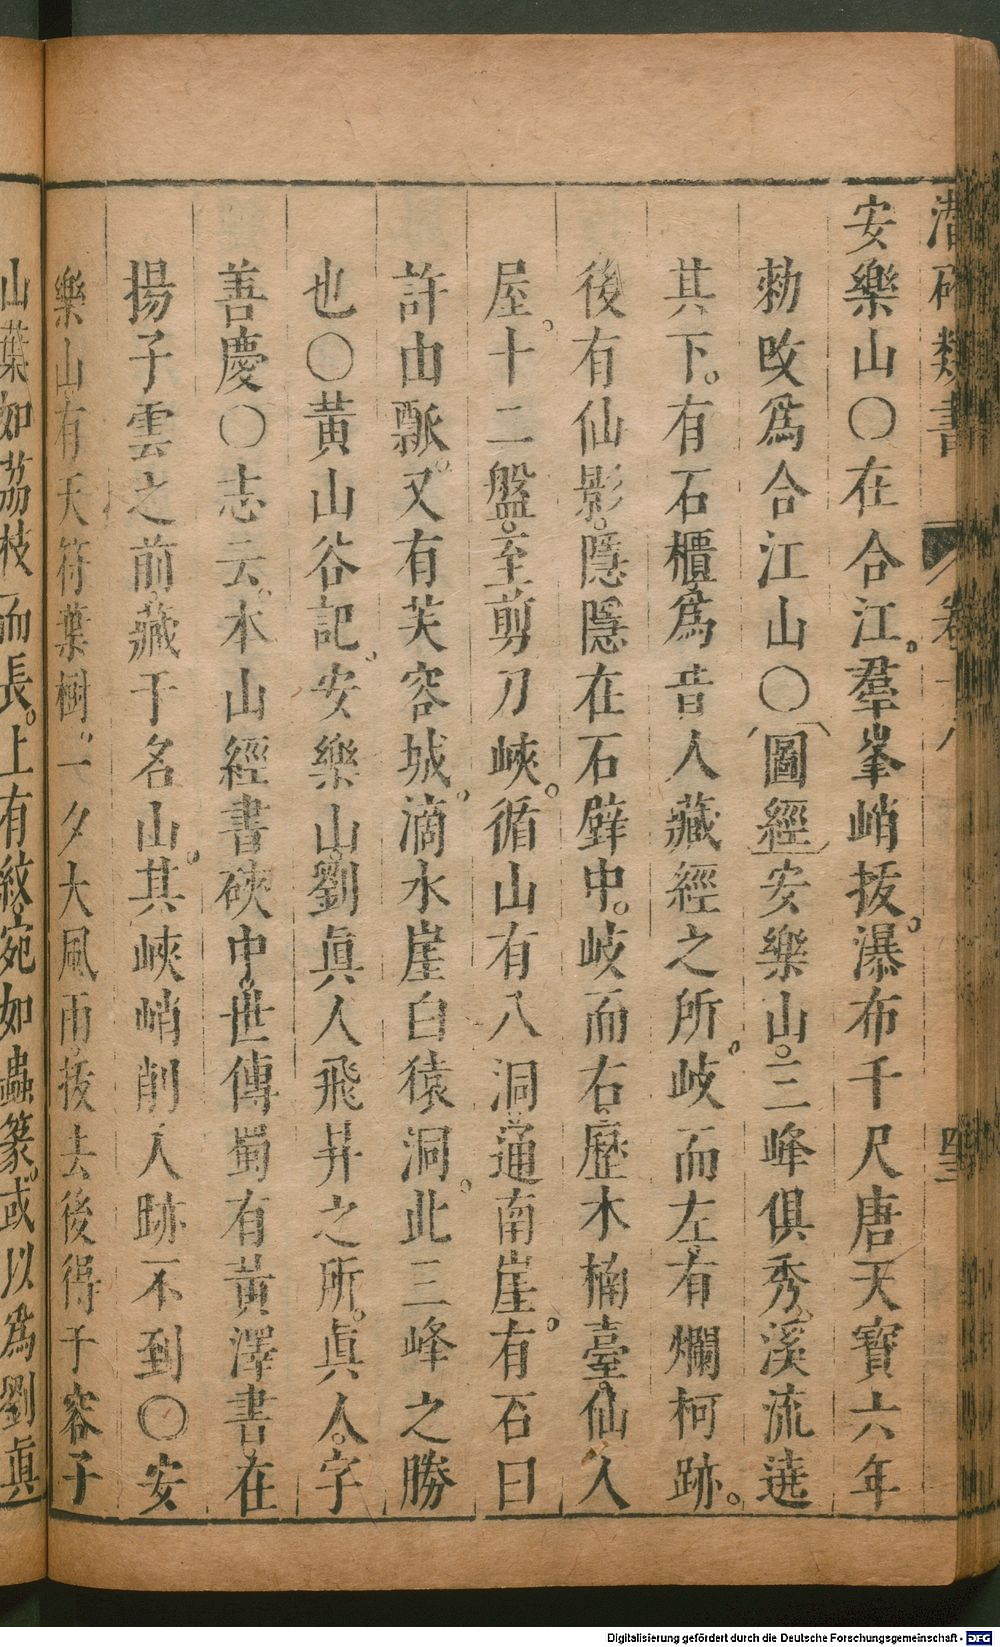 潛確類書 卷十八 四三
安樂山〇在合江。羣峯峭拔。瀑布千尺唐天寶六年
勑改爲合江山〇圖經安樂山。三峰俱秀。溪流遶
其下。有石櫃。爲昔人藏經之所。岐而左。有爛柯跡。
後有仙影。隱隱在石壁中。岐而右。歷木楠臺。仙人
屋。十二盤。至剪刀峽。循山有八洞。通南崖。有石曰
許由瓢。又有芙容城。滴水崖白猿洞。此三峰之勝
也〇黃山谷記。安樂山。劉眞人飛昇之所。眞人。字
善慶〇志云。本山經書硤中。世傳蜀有黃澤書。在
揚子雲之前。藏于名山。其峽峭削人跡不到〇安
樂山。有天符葉樹。一夕大風雨。拔去後得于容子
山葉如荔枝而長。上有紋。宛如蟲篆。或以爲劉眞
Digitalisierung gefördert durch die Deutsche Forschungsgemeinschaft - DFG